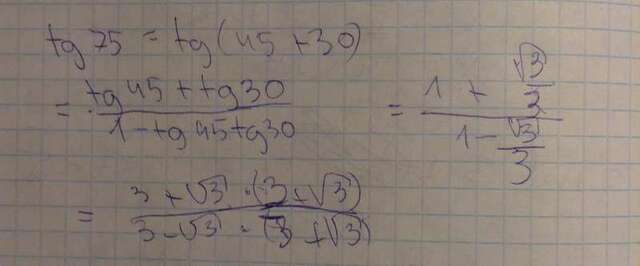 tg 75 = tg (45 + 30)
= tg45 + tg30 / 1 - tg45tg30 = 1 + √3/3 / 1 - √3/3
= 3 + √3 · (3 + √3) / 3 - √3 · (3 + √3)